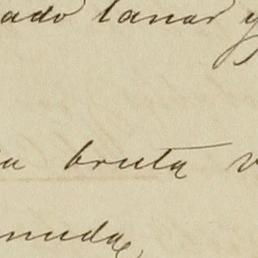 ado lanar y
a bruta v
muda,